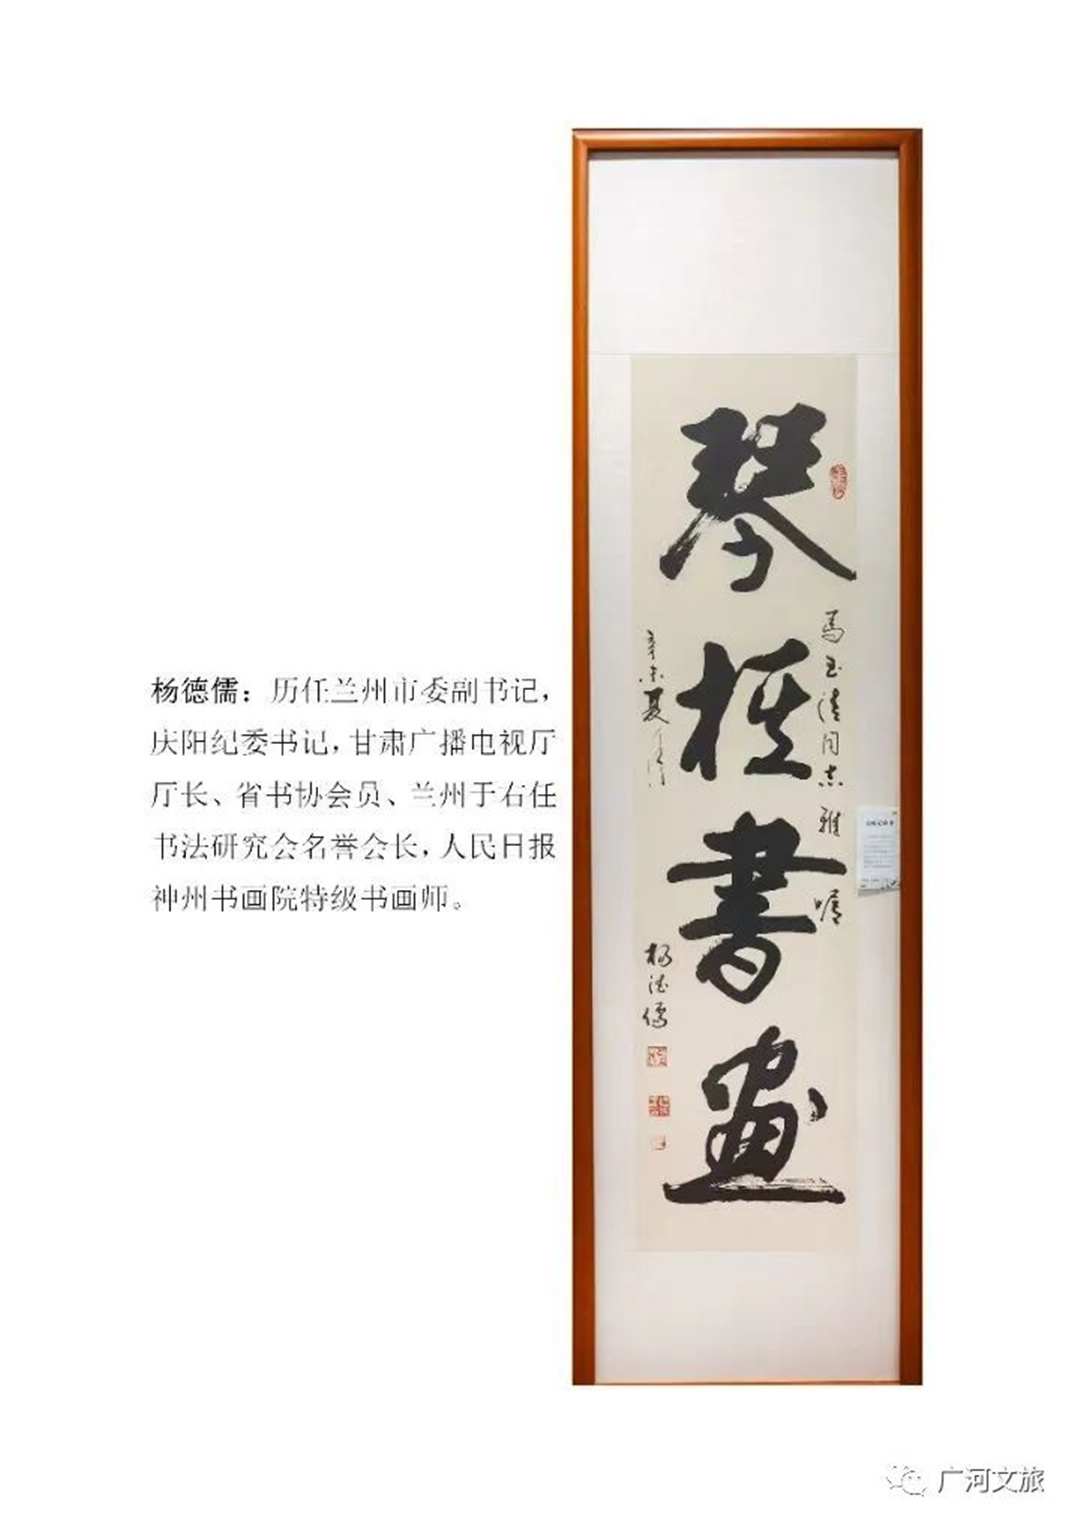 杨德儒：历任兰州市委副书记，
庆阳纪委书记，甘肃广播电视厅
厅长、省书协会员、兰州于右任
书法研究会名誉会长，人民日报
神州书画院特级书画师。
琴棋書畫
馬玉清同志雅嘱
辛未夏
杨德儒
广河文旅